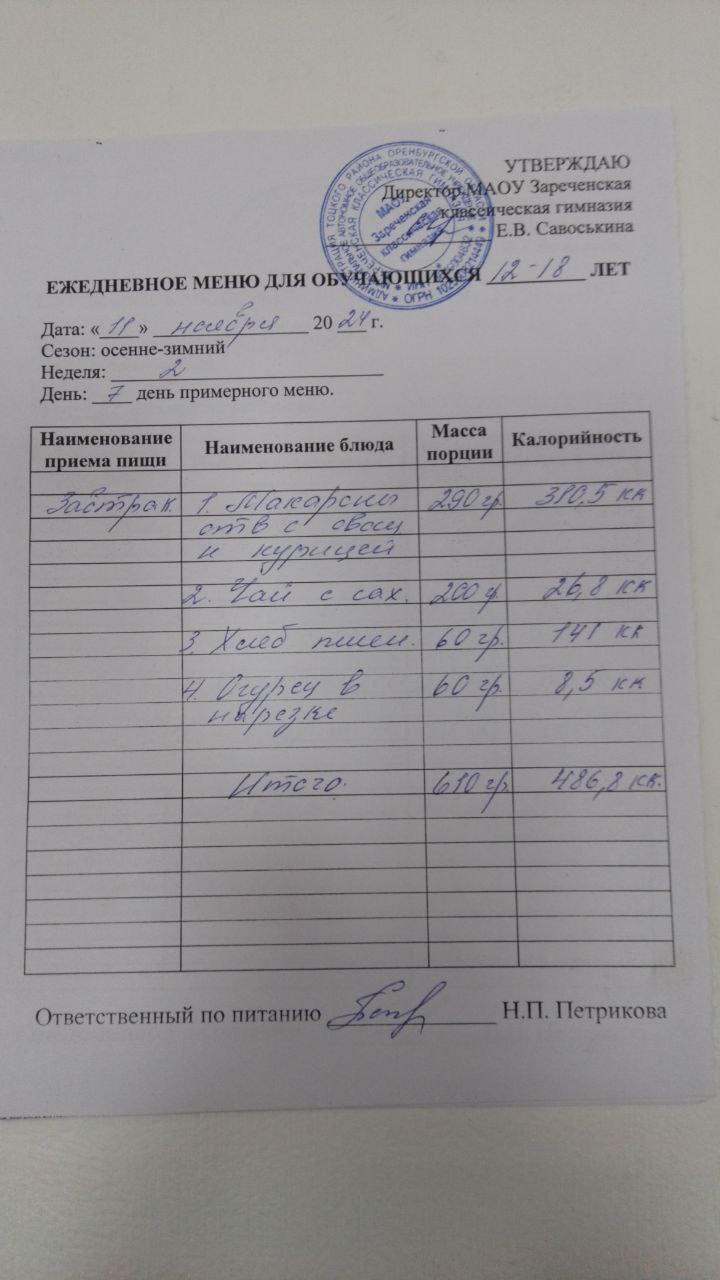 УТВЕРЖДАЮ
Директор МАОУ Зареченская
классическая гимназия
Е.В. Савоськина
МАОУ
Зареченская
классическая
гимназия
ЕЖЕДНЕВНОЕ МЕНЮ ДЛЯ ОБУЧАЮЩИХСЯ 12-18 ЛЕТ
Дата: «11» ноября 2024 г.
Сезон: осенне-зимний
Неделя: 2
День: 7 день примерного меню.
Наименование приема пищи Наименование блюда Масса порции Калорийность
Завтрак 1. Макароны 290 гр. 310,5 кк
отв с овощ
и курицей
2. Чай с сах. 200 гр 26,8 кк
3. Хлеб пшен. 60 гр. 141 кк
4. Огурец в 60 гр. 8,5 кк
нарезке
Итого. 610 гр 486,8 кк.
Ответственный по питанию Н.П. Петрикова